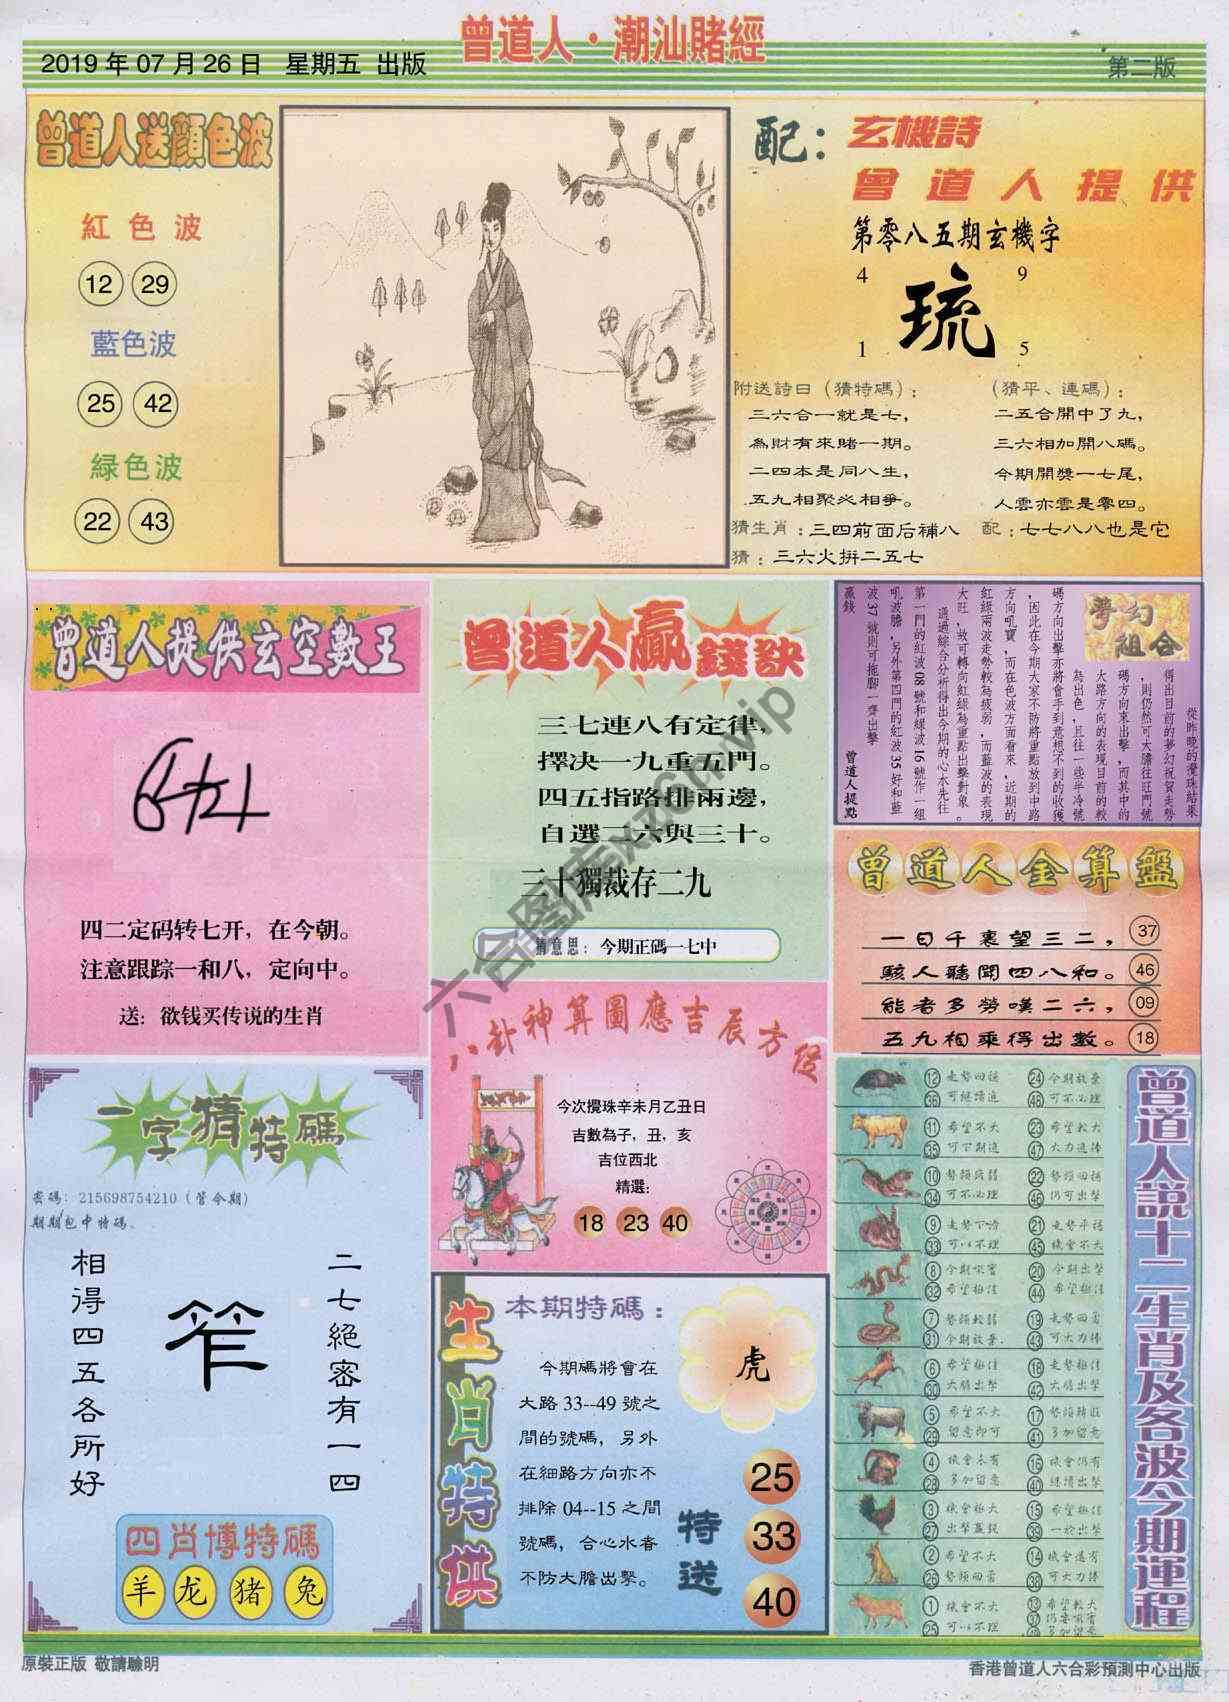 曾道人·潮汕賭經
2019年07月26日 星期五 出版
第二版
曾道人送顏色波
紅色波
12 29
藍色波
25 42
緑色波
22 43
配：
玄機詩
曾道人提供
第零八五期玄機字
4 9
琉
1 5
附送詩曰（猜特碼）：
三六合一就是七，
為財有來賭一期。
二四本是同八生，
五九相聚必相爭。
猜生肖：三四前面后補八
猜：三六火拼二五七
（猜平、連碼）：
二五合開中了九，
三六相加開八碼。
今期開獎一七尾，
人雲亦雲是零四。
配：七七八八也是它
曾道人提供玄空數王
四二定码转七开，在今朝。
注意跟踪一和八，定向中。
送：欲钱买传说的生肖
曾道人贏錢訣
三七連八有定律，
擇决一九重五門。
四五指路排兩邊，
自選二六與三十。
三十獨裁存二九
猜意思：今期正碼一七中
夢幻組合
從昨晚的攪珠結果
得出目前的夢幻祝賀走勢
，則仍然可大膽往旺門號
碼方向來出擊，而其中的
大路方向的表現目前的較
為出色，且往一些半冷號
碼方向出擊亦將會手到意想不到的收獲
，因此在今期大家不防將重點放到中路
方向吼寶，而在色波方面看來，近期的
紅綠兩波走勢較為疲弱，而藍波的表現
大旺，故可轉向紅綠為重點出擊對象。
通過綜合分析得出今期的心水先往
第一門的紅波08號和綠波16號作一組
吼波膽，另外第四門的紅波35好和藍
波37號則可拖腳一齊出擊
贏錢
曾道人提點
曾道人金算盤
一日千裏望三二， 37
駭人聽聞四八和。 46
能者多勞嘆二六， 09
五九相乘得出數。 18
八卦神算圖應吉辰方位
今次攪珠辛未月乙丑日
吉數為子，丑，亥
吉位西北
精選：
18 23 40
一字猜特碼
密碼：215698754210（管今期）
期期包中特碼、
二七絕審有一四
笮
相得四五各所好
四肖博特碼
羊 龙 猪 兔
生肖特供
本期特碼：
虎
今期碼將會在
大路33--49號之
間的號碼，另外
在細路方向亦不
排除04--15之間
號碼，合心水者
不防大膽出擊。
特送
25
33
40
曾道人説十二生肖及各波今期運程
12 36 走勢回穩 可繼續追
24 48 今期放棄 可不必理
11 35 希望不大 可下期追
23 47 希望較大 大力追捧
10 34 勢頭疲弱 可不必理
22 46 勢頭回補 仍可出擊
9 33 走勢下滑 可以不理
21 45 走勢平穩 機會不大
8 32 希望極佳
20 44 今期出擊 希望極佳
7 31 勢頭較弱 今期放棄
19 43 走勢回蓄 可大力捧
6 30 希望極佳 大膽出擊
18 42 走勢極佳 大膽出擊
5 29 希望不大 留意即可
17 41 勢頭轉旺 多加留意
4 28 機會未有 多加留意
16 40 機會仍有 繼續出擊
3 27 機會極大 出擊贏錢
15 39 希望極佳 一於出擊
2 26 希望不大 勢頭回蓄
14 38 機會還有 可大力捧
1 25 機會不大 可以不理
13 37 49 希望較大 仍要吼實 多加留意
六合图库xz6h.vip
原裝正版 敬請驗明
香港曾道人六合彩預測中心出版